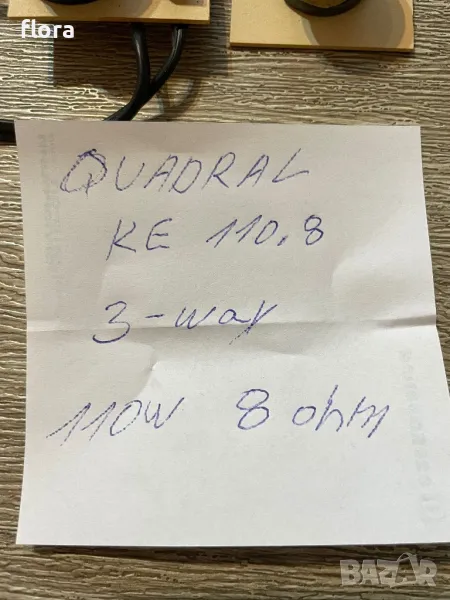 flora
QUADRAL
KE 110.8
3-way
110W 8 ohm
BAZAR